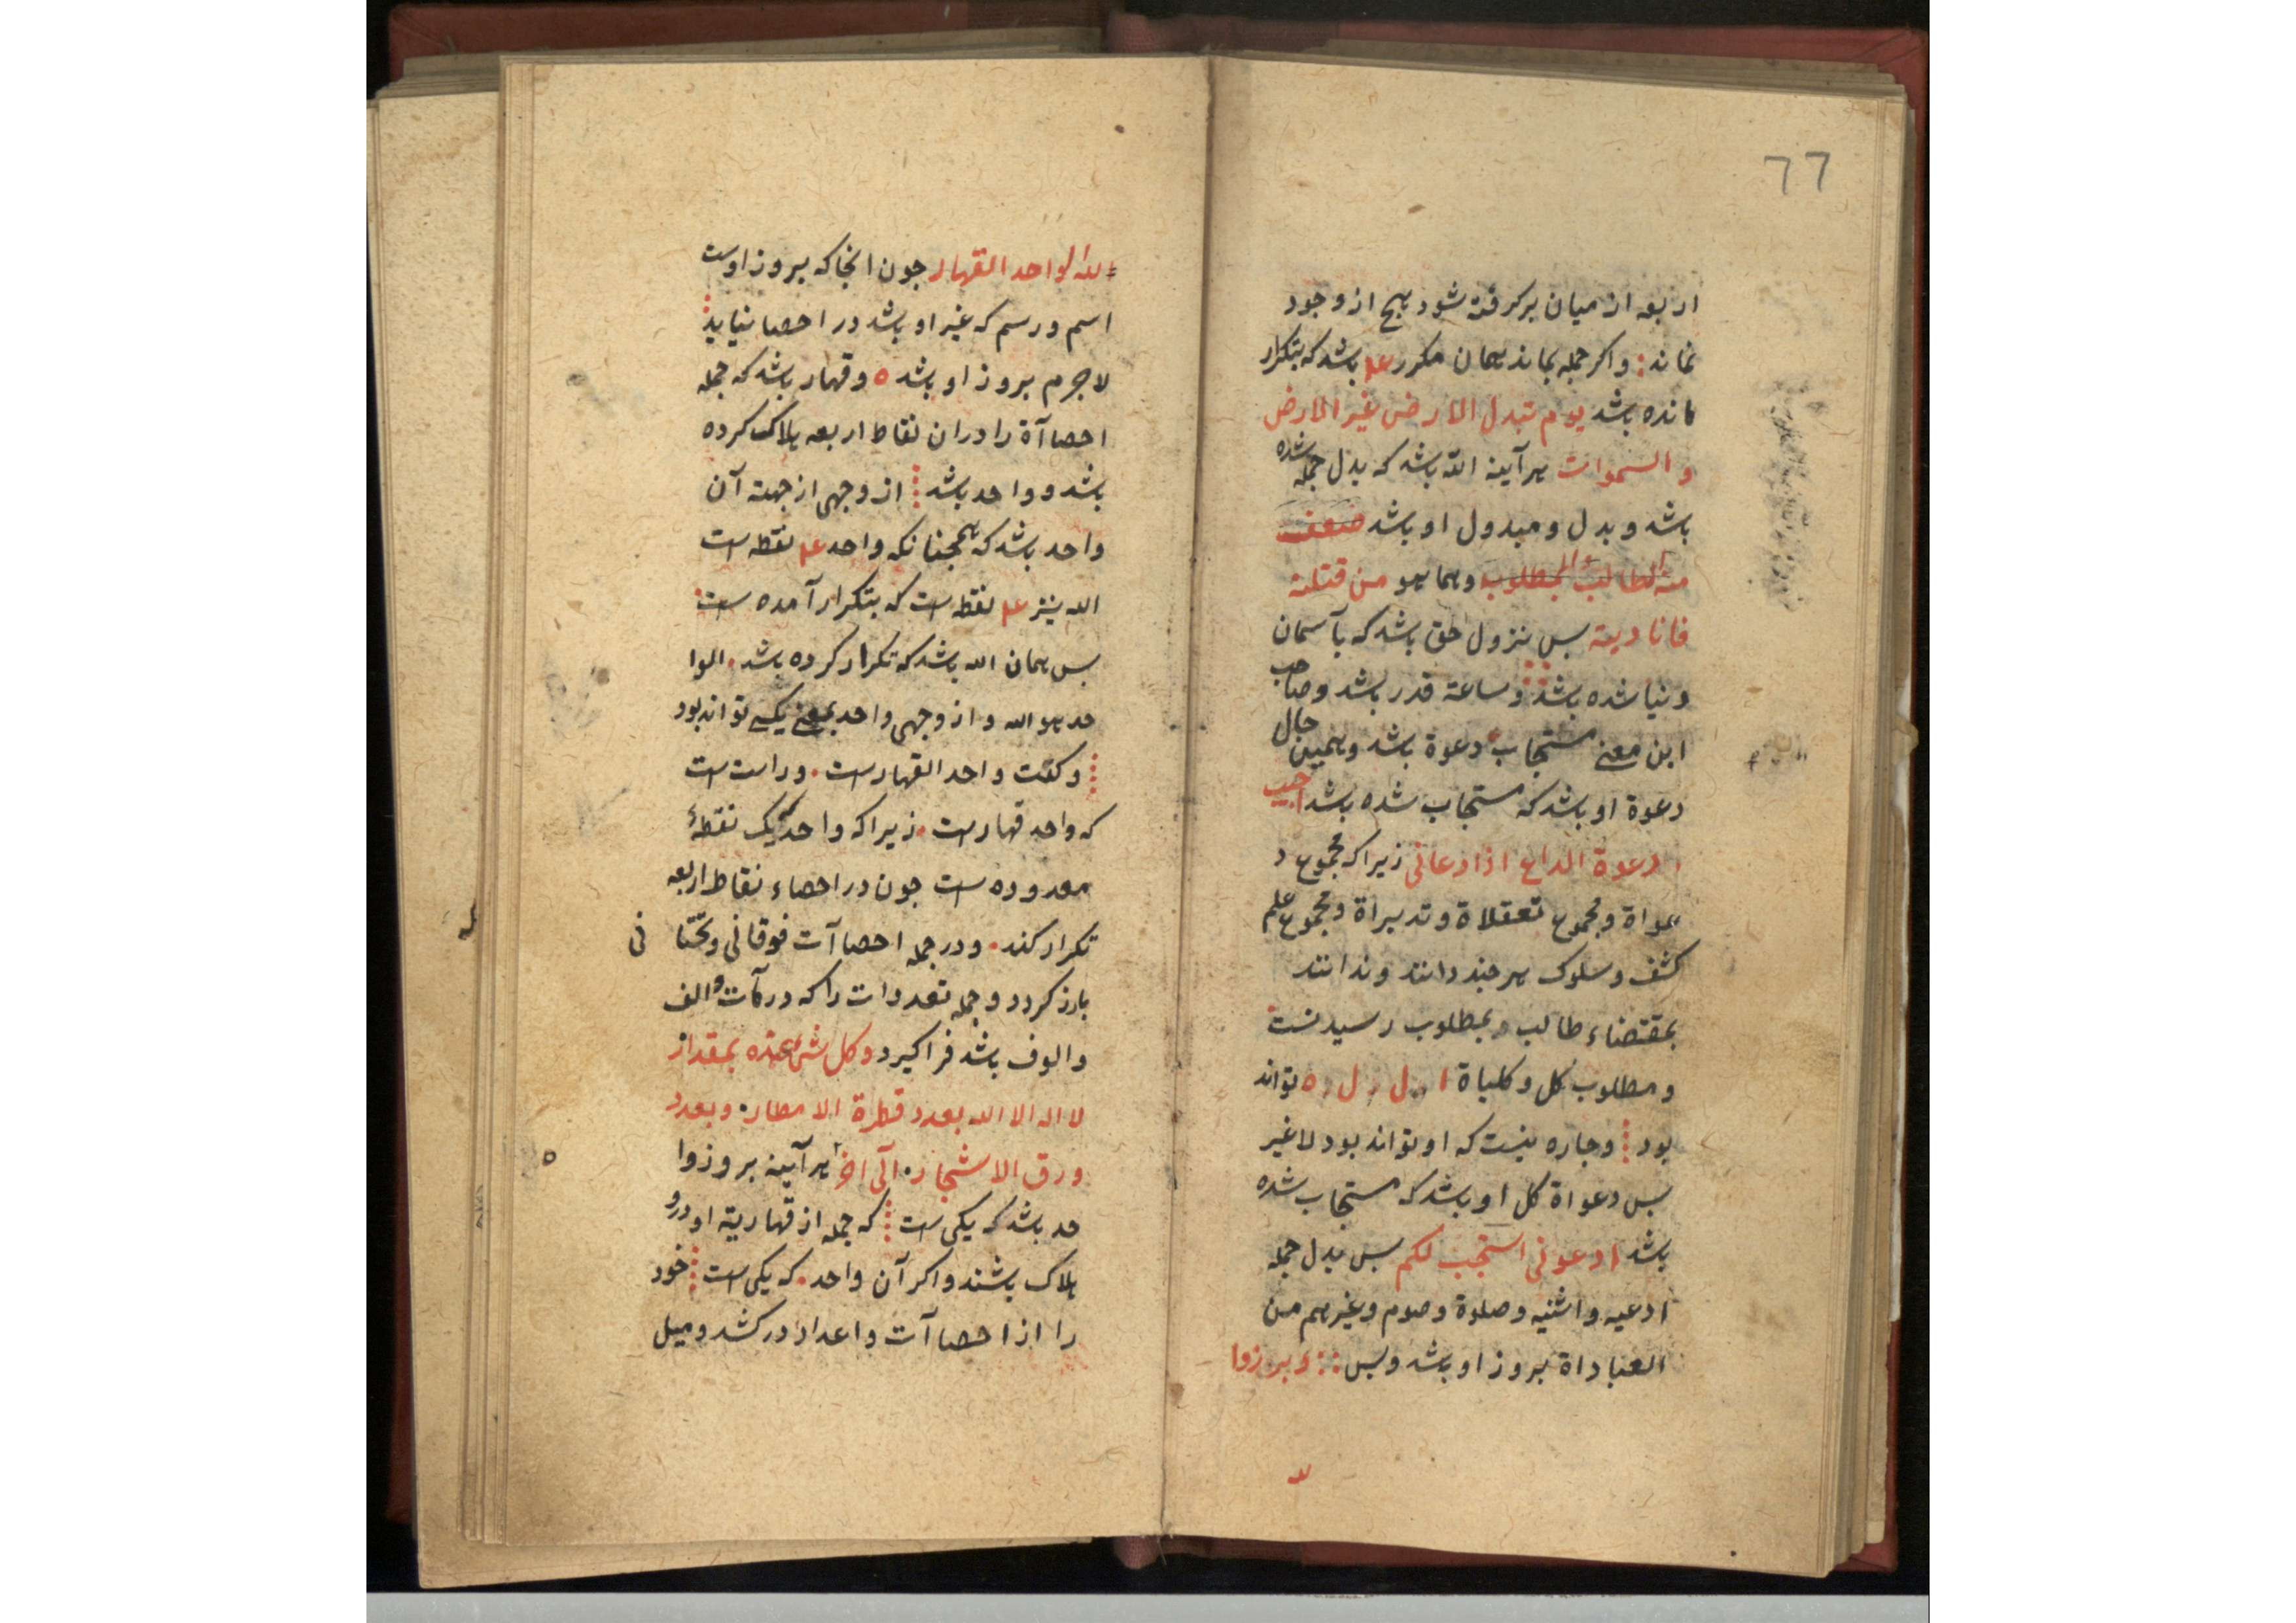 77
اربعه از میان برکرفته شود هیچ از وجود
نماند : واکر جمله بماند همان مکرر علم باشد که بتکرار
مانده باشد یوم تبدل الارض غیر الارض
و السموات هرآینه الله باشد که بدل جمله شده
باشد و بدل و مبدول او باشد ضعف
الطالب المطلوب وهماهو من قتلته
فانا دیته بس نزول حق باشد که بآسمان
دنیا شده باشد و ساعة قدر باشد و صاحب
این معنی مستجاب دعوة باشد و همین حال
دعوة او باشد که مستجاب شده باشد اجیب
دعوة الداع اذا دعانی زیراکه مجموع د
عواة و مجموع تعقلاة و تدبیراة و مجموع علم
کشف و سلوک هرجند دانند و ندانند
بمقتضاء طالب و بمطلوب رسیدنست
و مطلوب کل و کلیاة ا . ل . ل . ه تواند
بود و جاره نیست که او تواند بود لاغیر
بس دعواة کل او باشد که مستجاب شده
باشد ادعونی استجب لکم بس بدل جمله
ادعیه و اثنیه و صلوة و صوم و غیرهم من
العباداة بروز او باشد و بس :: و برزوا
لله
لله الواحد القهار جون انجا که بروز اوست
اسم و رسم که غیر او باشد در احصا نیاید
لاجرم بروز او باشد ه و قهار باشد که جمله
احصاآة را دران نقاط اربعه هلاک کرده
باشد و واحد باشد از وجهی از جهته آن
واحد باشد که همجنانکه واحد علم نقطه است
الله نیز علم نقطه است که بتکرار آمده است
بس همان الله باشد که تکرار کرده باشد . الوا
حد هو الله و از وجهی واحد بمعنی یکی تواند بود
و کفت واحد القهارست . و راست است
که واحد قهارست . زیراکه واحد یک نقطهٔ
معدوده است جون در احصاء نقاط اربعه
تکرار کند . و در جمله احصاآت فوقانی و تحتا نی
بارز کردد و جمله تعددات را که در مآت و الف
و الوف باشد فراکیرد وکل شیء عنده بمقدار
لا اله الا الله بعدد قطرة الامطار . و بعدد
ورق الاشجار . الی اخر هرآینه بروز وا
حد باشد که یکی است که جمله از قهاریة او درو
هلاک باشند و اکر آن واحد . که یکی است خود
را از احصاآت و اعداد درکشد و میل